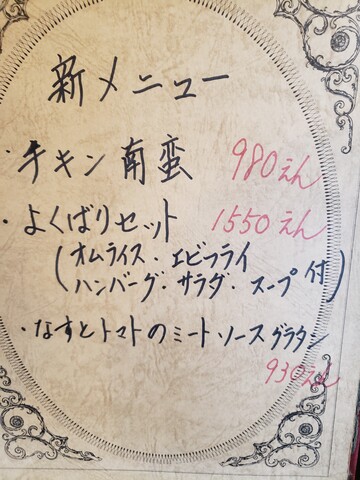 新メニュー
・チキン南蛮 980えん
・よくばりセット 1550えん
(オムライス・エビフライ
ハンバーグ・サラダ・スープ付)
・なすとトマトのミートソースグラタン
930えん